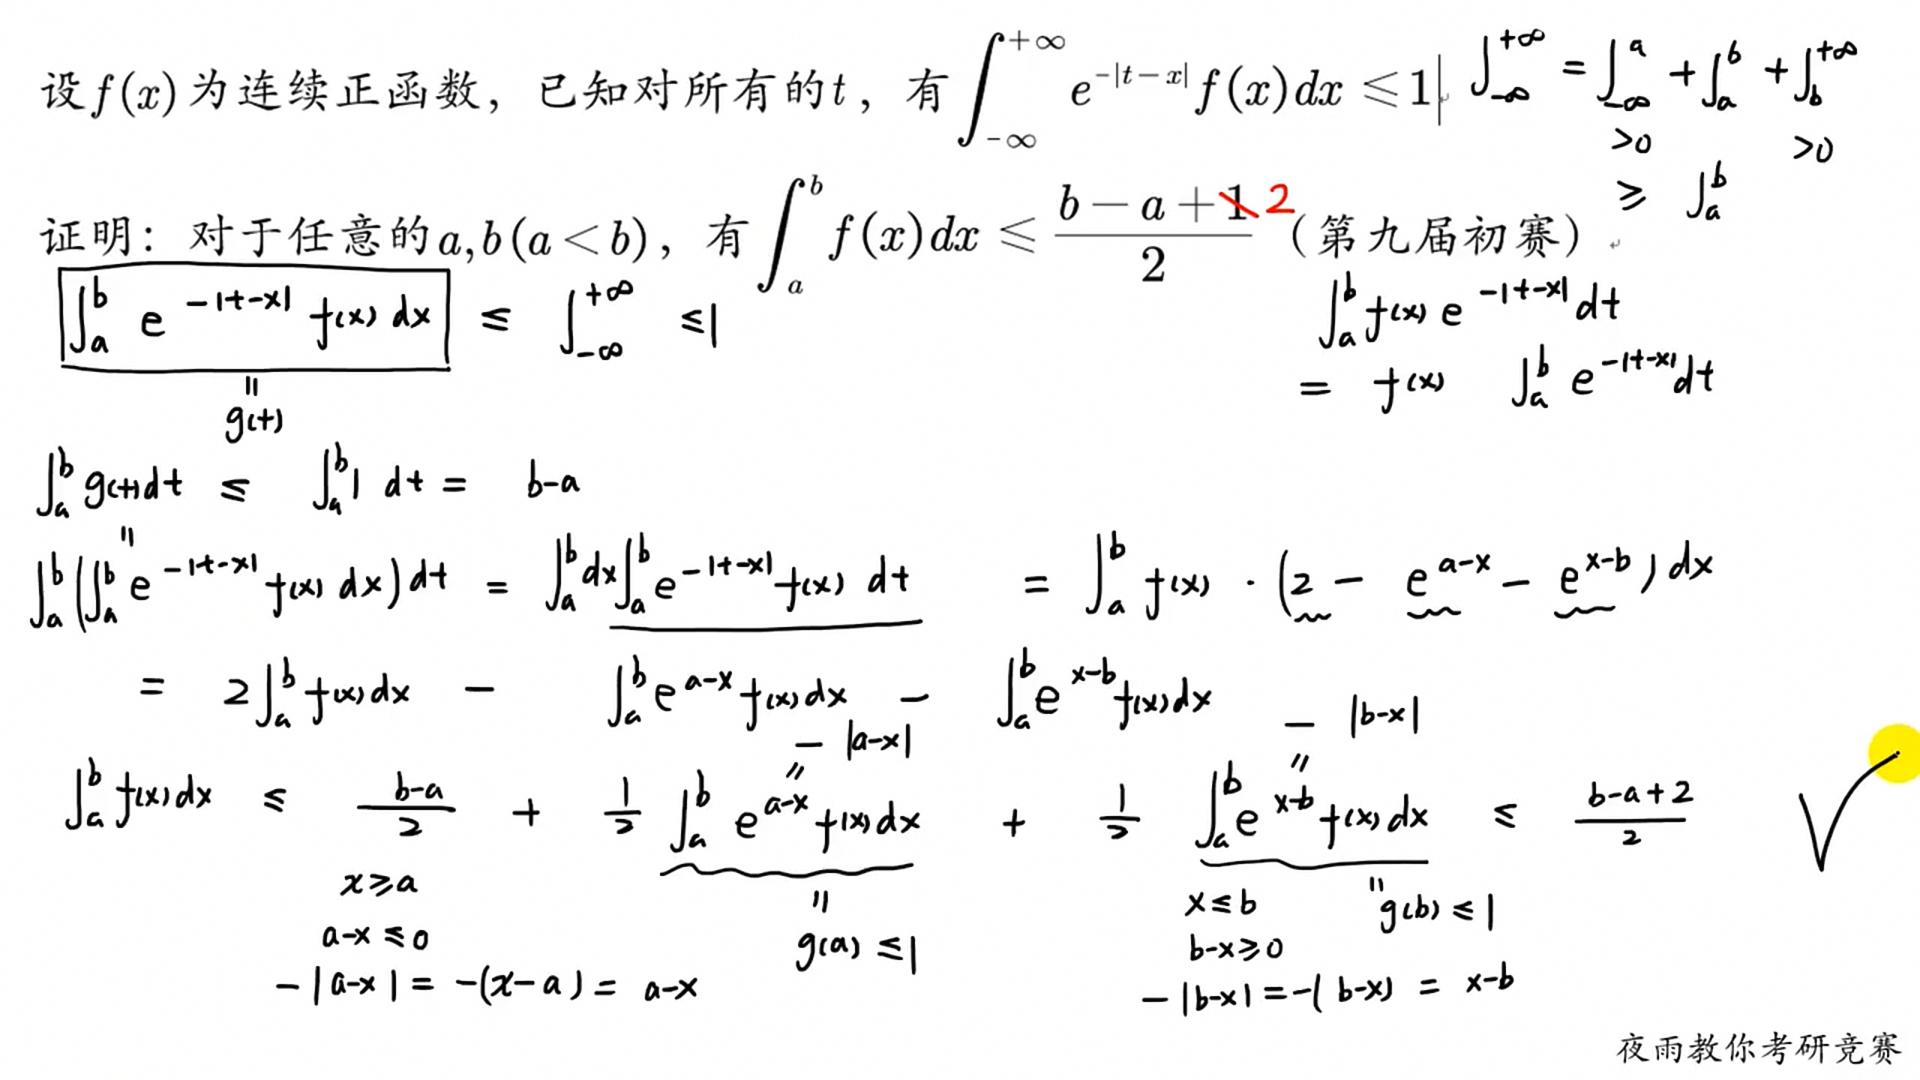 设f(x)为连续正函数，已知对所有的t，有∫_{-∞}^{+∞} e^{-|t-x|} f(x)dx ≤ 1 ∫_{-∞}^{+∞} = ∫_{-∞}^{a} + ∫_{a}^{b} + ∫_{b}^{+∞}
>0 >0
≥ ∫_{a}^{b}
证明：对于任意的a,b(a<b)，有∫_{a}^{b} f(x)dx ≤ (b-a+1)/2 2 (第九届初赛)
∫_{a}^{b} e^{-|t-x|} f(x) dx ≤ ∫_{-∞}^{+∞} ≤1 ∫_{a}^{b} f(x) e^{-|t-x|} dt
= f(x) ∫_{a}^{b} e^{-|t-x|} dt
=
g(t)
∫_{a}^{b} g(t)dt ≤ ∫_{a}^{b} 1 dt = b-a
=
∫_{a}^{b} (∫_{a}^{b} e^{-|t-x|} f(x) dx) dt = ∫_{a}^{b} dx ∫_{a}^{b} e^{-|t-x|} f(x) dt = ∫_{a}^{b} f(x) · (2 - e^{a-x} - e^{x-b}) dx
= 2∫_{a}^{b} f(x)dx - ∫_{a}^{b} e^{a-x} f(x)dx - ∫_{a}^{b} e^{x-b} f(x)dx
-|a-x| -|b-x|
= =
∫_{a}^{b} f(x)dx ≤ (b-a)/2 + 1/2 ∫_{a}^{b} e^{a-x} f(x)dx + 1/2 ∫_{a}^{b} e^{x-b} f(x)dx ≤ (b-a+2)/2
x≥a = x≤b = g(b) ≤1
a-x ≤0 g(a) ≤1 b-x≥0
-|a-x| = -(x-a) = a-x -|b-x| = -(b-x) = x-b
夜雨教你考研竞赛